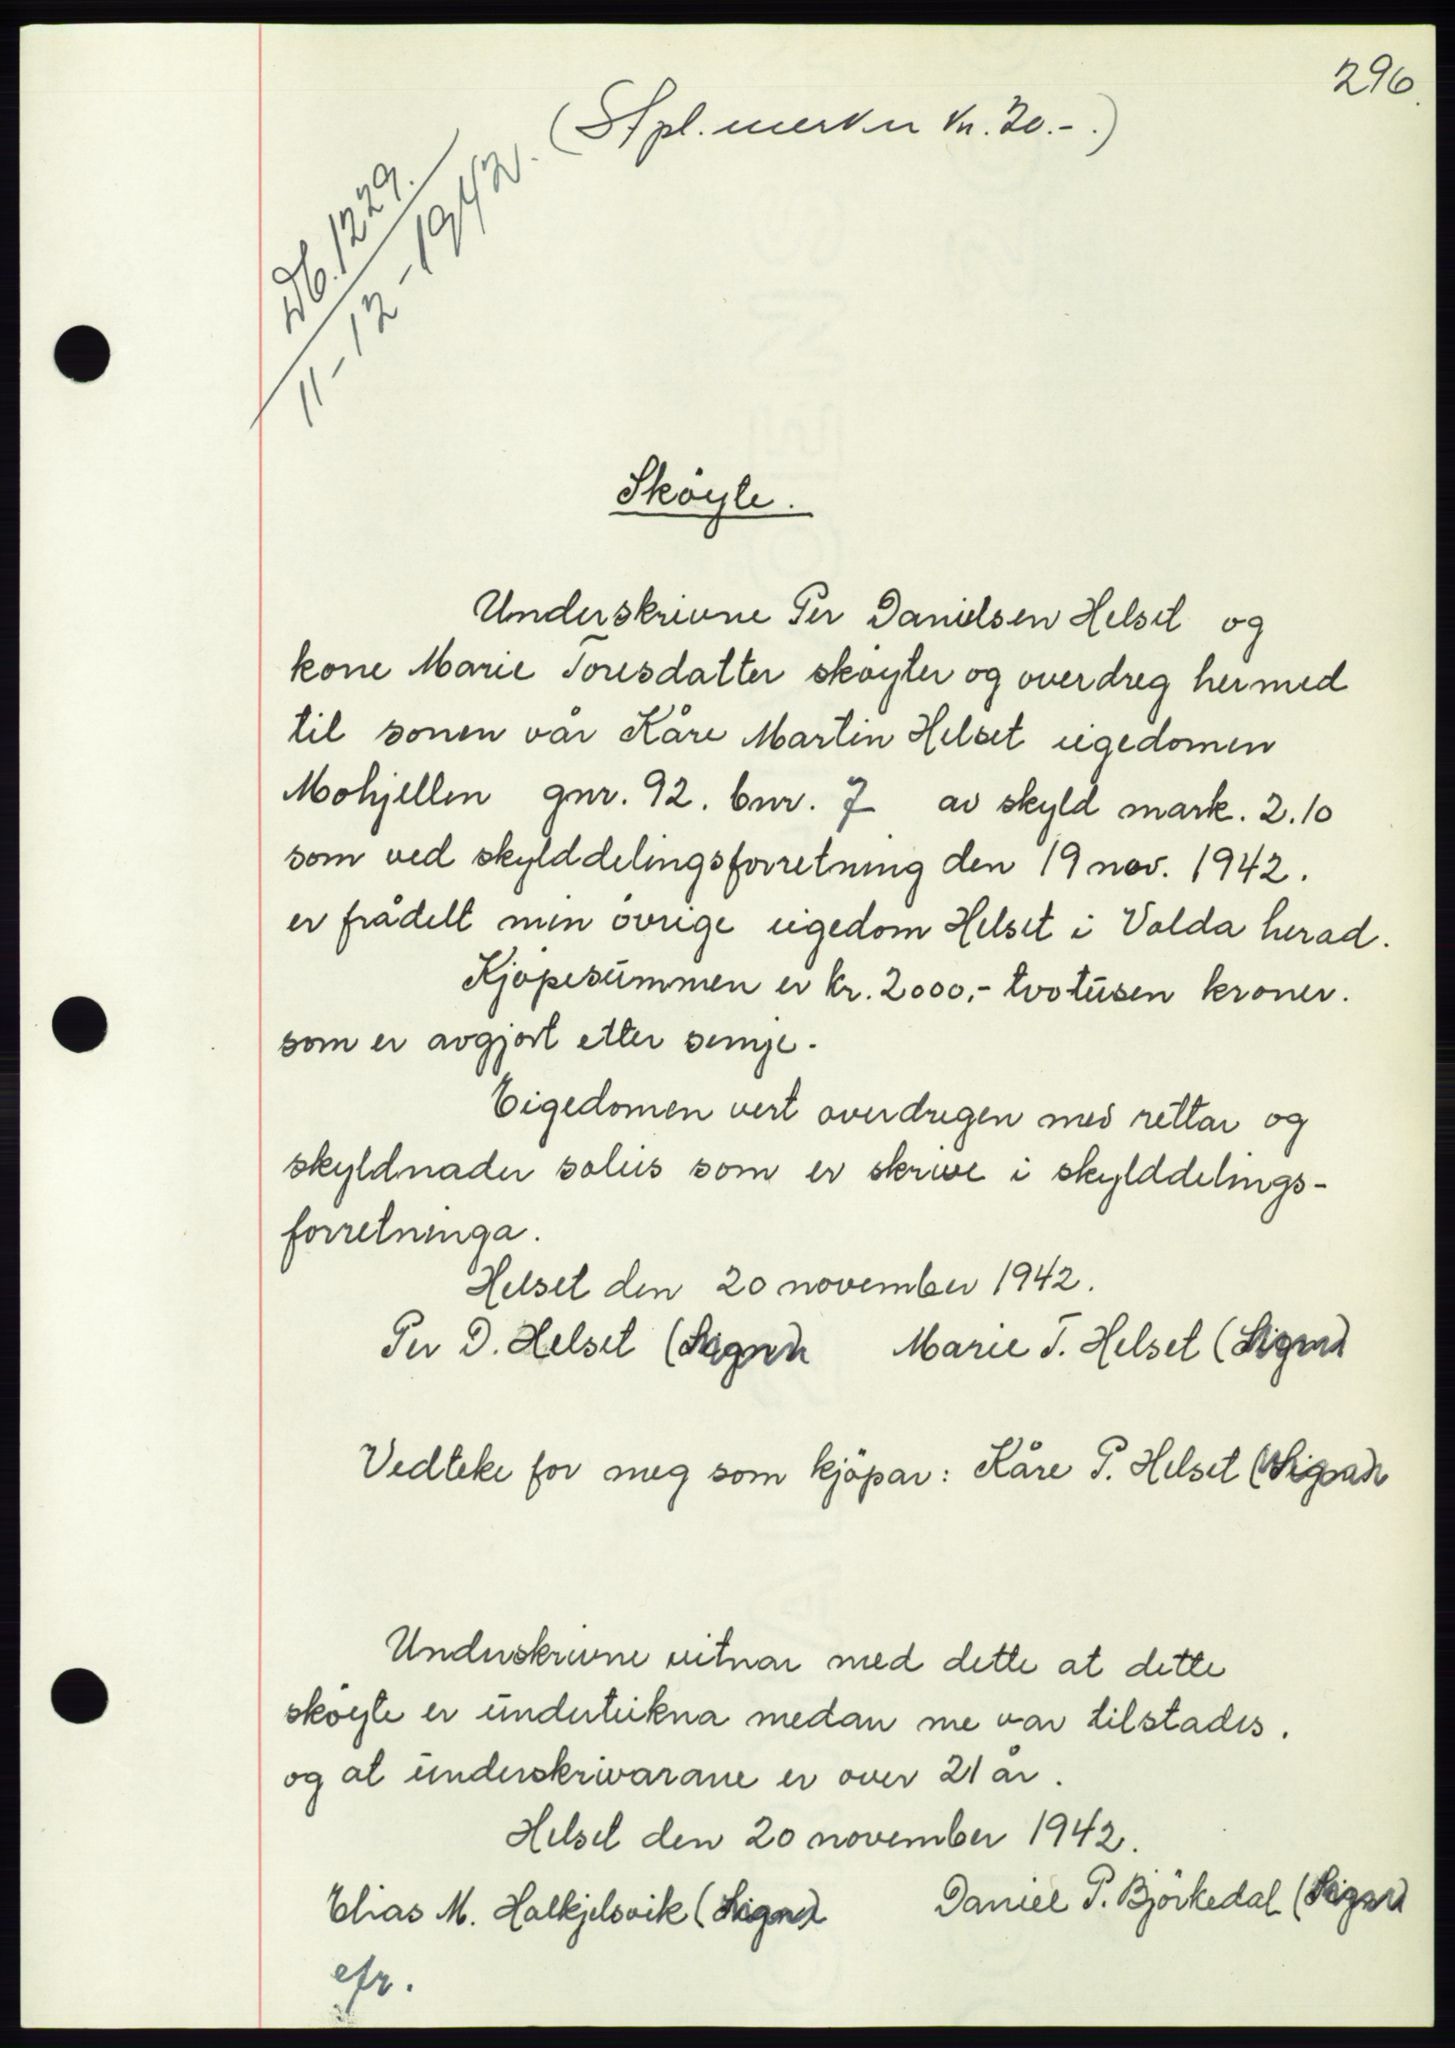 296.
(Stpl. merker kr. 20.-.)
Db. 1229.
11-12-1942.
Sköyte.
Underskrivne Per Danielsen Helset og
kone Marie Toresdatter sköyter og overdreg hermed
til sonen vår Kåre Martin Helset eigedomen
Mohjellen gnr. 92. bnr. 7 av skyld mark. 2.10
som ved skylddelingsforretning den 19 nov. 1942.
er frådelt min övrige eigedom Helset i Volda herad.
Kjöpesummen er kr. 2000,- tvotusen kroner.
som er avgjort etter semje.
Eigedomen vert overdregen med rettar og
skyldnader soleis som er skrive i skylddelings-
forretninga.
Helset den 20 november 1942.
Per D. Helset (Sign) Marie T. Helset (Sign)
Vedteke for meg som kjöpar: Kåre P. Helset (Sign)
Underskrivne vitnar med dette at dette
sköyte er underteikna medan me var tilstades.
og at underskrivarane er over 21 år.
Helset den 20 november 1942.
Elias M. Halkjelsvik (Sign) Daniel P. Björkedal (Sign)
efr.